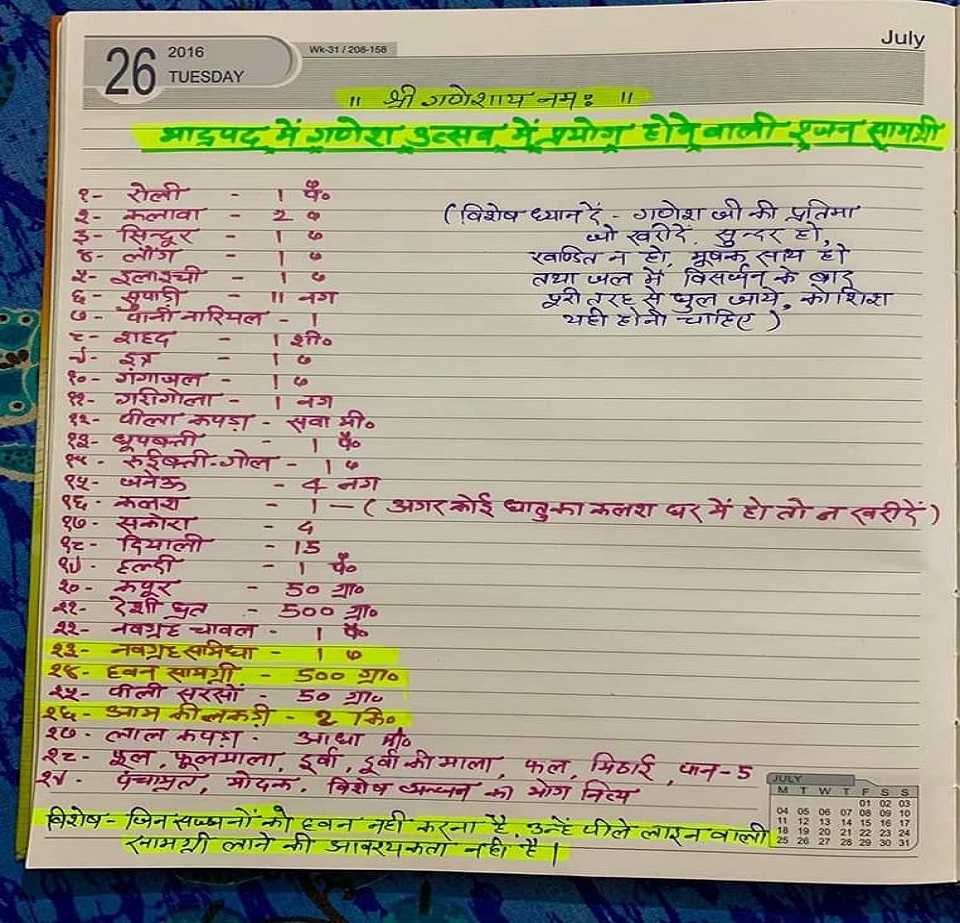 26
2016
TUESDAY
Wk-31 / 208-158
July
॥ श्री गणेशाय नमः ॥
भाद्रपद में गणेश उत्सव में प्रयोग होने वाली पूजन सामग्री
१- रोली - 1 पै०
२- कलावा - 2 "
३- सिन्दूर - 1 "
४- लौंग - 1 "
५- इलाइची - 1 "
६- सुपाड़ी - 11 नग
७- पानी नारियल - 1
८- शहद - 1 शी०
९- इत्र - 1 "
१०- गंगाजल - 1 "
११- गरीगोला - 1 नग
१२- पीला कपड़ा - सवा मी०
१३- धूपबत्ती - 1 पै०
१४- रुईबत्ती-गोल - 1 "
१५- जनेऊ - 4 नग
१६- कलश - 1 - ( अगर कोई धातु का कलश घर में हो तो न खरीदें )
१७- सकोरा - 4
१८- दियाली - 15
१९- हल्दी - 1 पै०
२०- कपूर - 50 ग्रा०
२१- देशी घृत - 500 ग्रा०
२२- नवग्रह चावल - 1 पै०
२३- नवग्रह समिधा - 1 "
२४- हवन सामग्री - 500 ग्रा०
२५- पीली सरसों - 50 ग्रा०
२६- आम की लकड़ी - 2 कि०
२७- लाल कपड़ा - आधा मी०
२८- फूल, फूलमाला, दूर्वा, दूर्वा की माला, फल, मिठाई, पान-5
२९- पंचामृत, मोदक, विशेष व्यन्जन का भोग नित्य
( विशेष ध्यान दें - गणेश जी की प्रतिमा
जो खरीदें, सुन्दर हो,
खण्डित न हो, मूषक साथ हो
तथा जल में विसर्जन के बाद
पूरी तरह से घुल जाये, कोशिश
यही होनी चाहिए )
विशेष- जिन सज्जनों को हवन नहीं करना है, उन्हें पीले लाइन वाली
सामग्री लाने की आवश्यकता नहीं है।
JULY
M T W T F S S
01 02 03
04 05 06 07 08 09 10
11 12 13 14 15 16 17
18 19 20 21 22 23 24
25 26 27 28 29 30 31